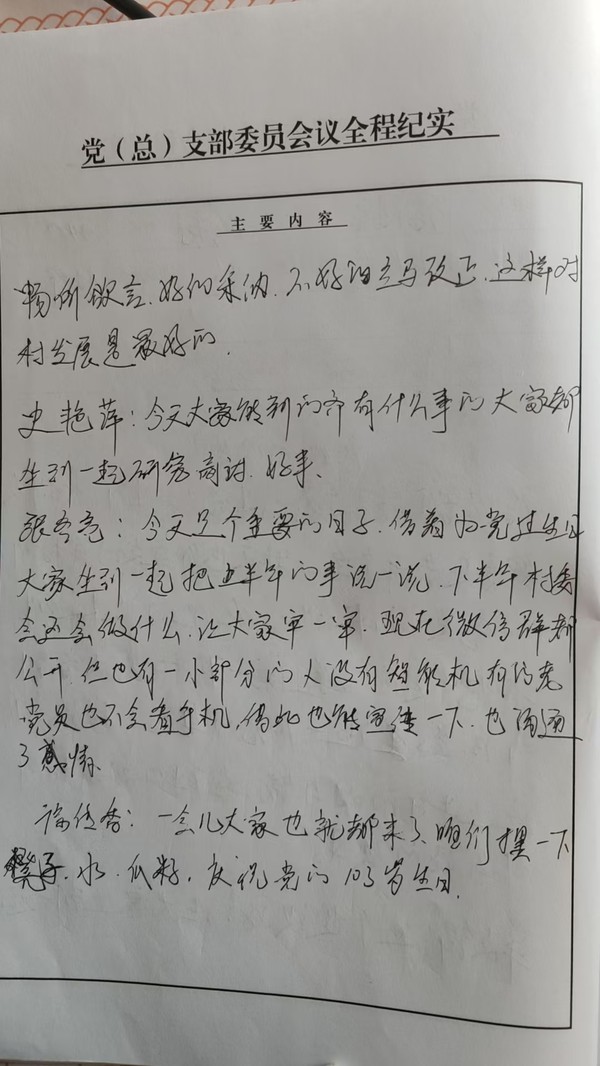 党（总）支部委员会议全程纪实
主要内容
畅所欲言、好的采纳、不好的立马改正、这样对
村发展是最好的.
史艳萍：今天大家能到的齐有什么事的大家都
坐到一起研究商讨.好事、
今天是个重要的日子.借着为党过生日
大家坐到一起把上半年的事说一说.下半年村委
会还会做什么.让大家审一审.现在微信群都
公开.但也有一小部分的人没有智能机有的老
党员也不会看手机，借此也能宣传一下.也沟通
了感情.
一会儿大家也就都来了、咱们摆一下
凳子、水、瓜籽，庆祝党的103岁生日.